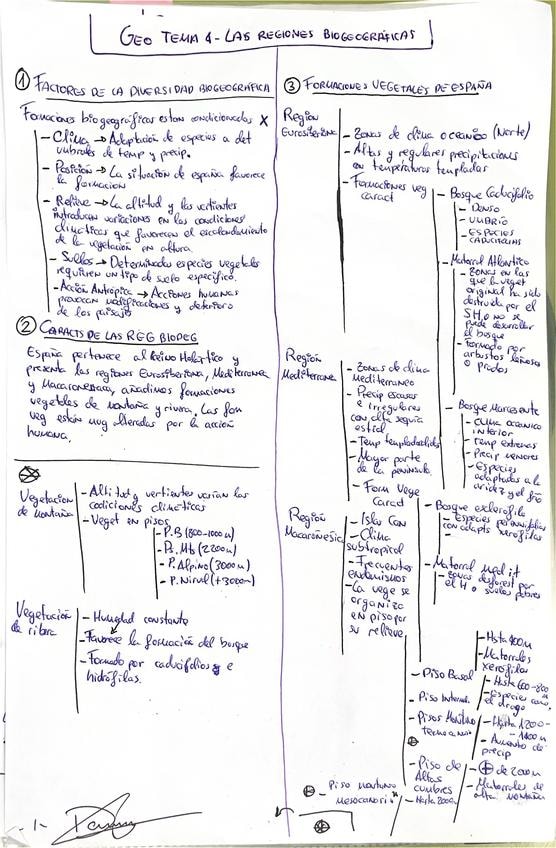 GEO TEMA 4 - LAS REGIONES BIOGEOGRÁFICAS
① FACTORES DE LA DIVERSIDAD BIOGEOGRÁFICA
Formaciones biogeográficas estan condicionadas x
- Clima → Adaptación de especies a det
umbrales de temp y precip.
- Posición → La situación de españa favorece
la formación
- Relieve → La altitud y las vertientes
introducen variaciones en las condiciones
climáticas que favorecen el escalonamiento
de la vegetación en altura.
- Suelos → Determinadas especies vegetales
requieren un tipo de suelo específico.
- Acción Antrópica → Acciones humanas
provocan modificaciones y deterioro
de los paisajes
② CARACTS DE LAS REG BIOGEG
España pertenece al Reino Holártico y
presenta las regiones Eurosiberiana, Mediterranea
y Macaronesica, añadimos formaciones
vegetales de montaña y rivera. Las fom
veg están muy alteradas por la acción
humana.
Vegetacion
de montaña
- Altitud y vertientes varían las
codiciones climáticas
- Veget en pisos
- P.B (800-1000m)
- Ps. Mt (2200m)
- P. Alpino (3000m)
- P. Nival (+3000m)
Vegetación
de ribera
- Humedad constante
- Favorece la formación del bosque
- Formado por caducifolios e
hidrófilas.
-1-
③ FORMACIONES VEGETALES DE ESPAÑA
Region
Eurosiberiana
- Zonas de clima oceanico (Norte)
- Altas y regulares precipitaciones
en temperaturas templadas
- Formaciones veg
caract
- Bosque Caducifolio
- DENSO
- UMBRÍO
- ESPECIES
CADUCIFOLIAS
- Matorral Atlántico
- Zonas en las
que la veget
original ha sido
destruida por el
SH, o no se
puede desarrollar
el bosque
- Formado por
arbustos leñosos
o prados
- Bosque Marcescente
- Clima oceanico
interior
- Temp extremas
- Precip menores
- Especies
adaptadas a la
aridez y el frío
Región
Mediterranea
- Zonas de clima
Mediterraneo
- Precip escasas
e irregulares
con alta sequía
estival
- Temp templadas
- Mayor parte
de la península.
- Form Vege
Caract
- Bosque esclerófilo
- Especies perennifolias
con adapts xerófilas
- Matorral Medit
- Zonas desforest por
el H o suelos pobres
Región
Macaronésica
- Islas Can
- Clima
subtropical
- Frecuentes
endemismos
- La vege se
organiza
en pisos por
su relieve
- Piso Basal
- Hsta 400m
- Matorrales
xerófilas
- Piso Interm.
- Hsta 600-800
- Especies como
el drago
- Pisos Montano
termocanario
- Hsta 1200-
1400m
- Aumento de
precip
- Piso de
Altas
cumbres
- + de 2000m
- Matorrales de
alta montaña
- Piso montano
mesocanario
- Hsta 2000m